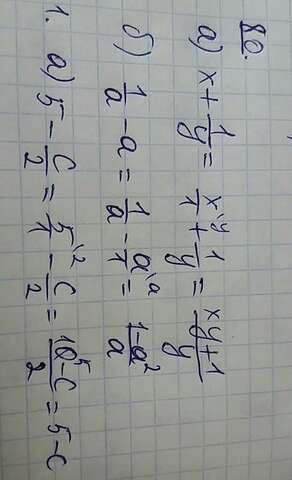 80.
а) x + 1/y = x\y/1 + 1/y = xy+1/y
б) 1/a - a = 1/a - a\a/1 = 1-a²/a
1. а) 5 - c/2 = 5\2/1 - c/2 = 10⁵-c/2 = 5-c